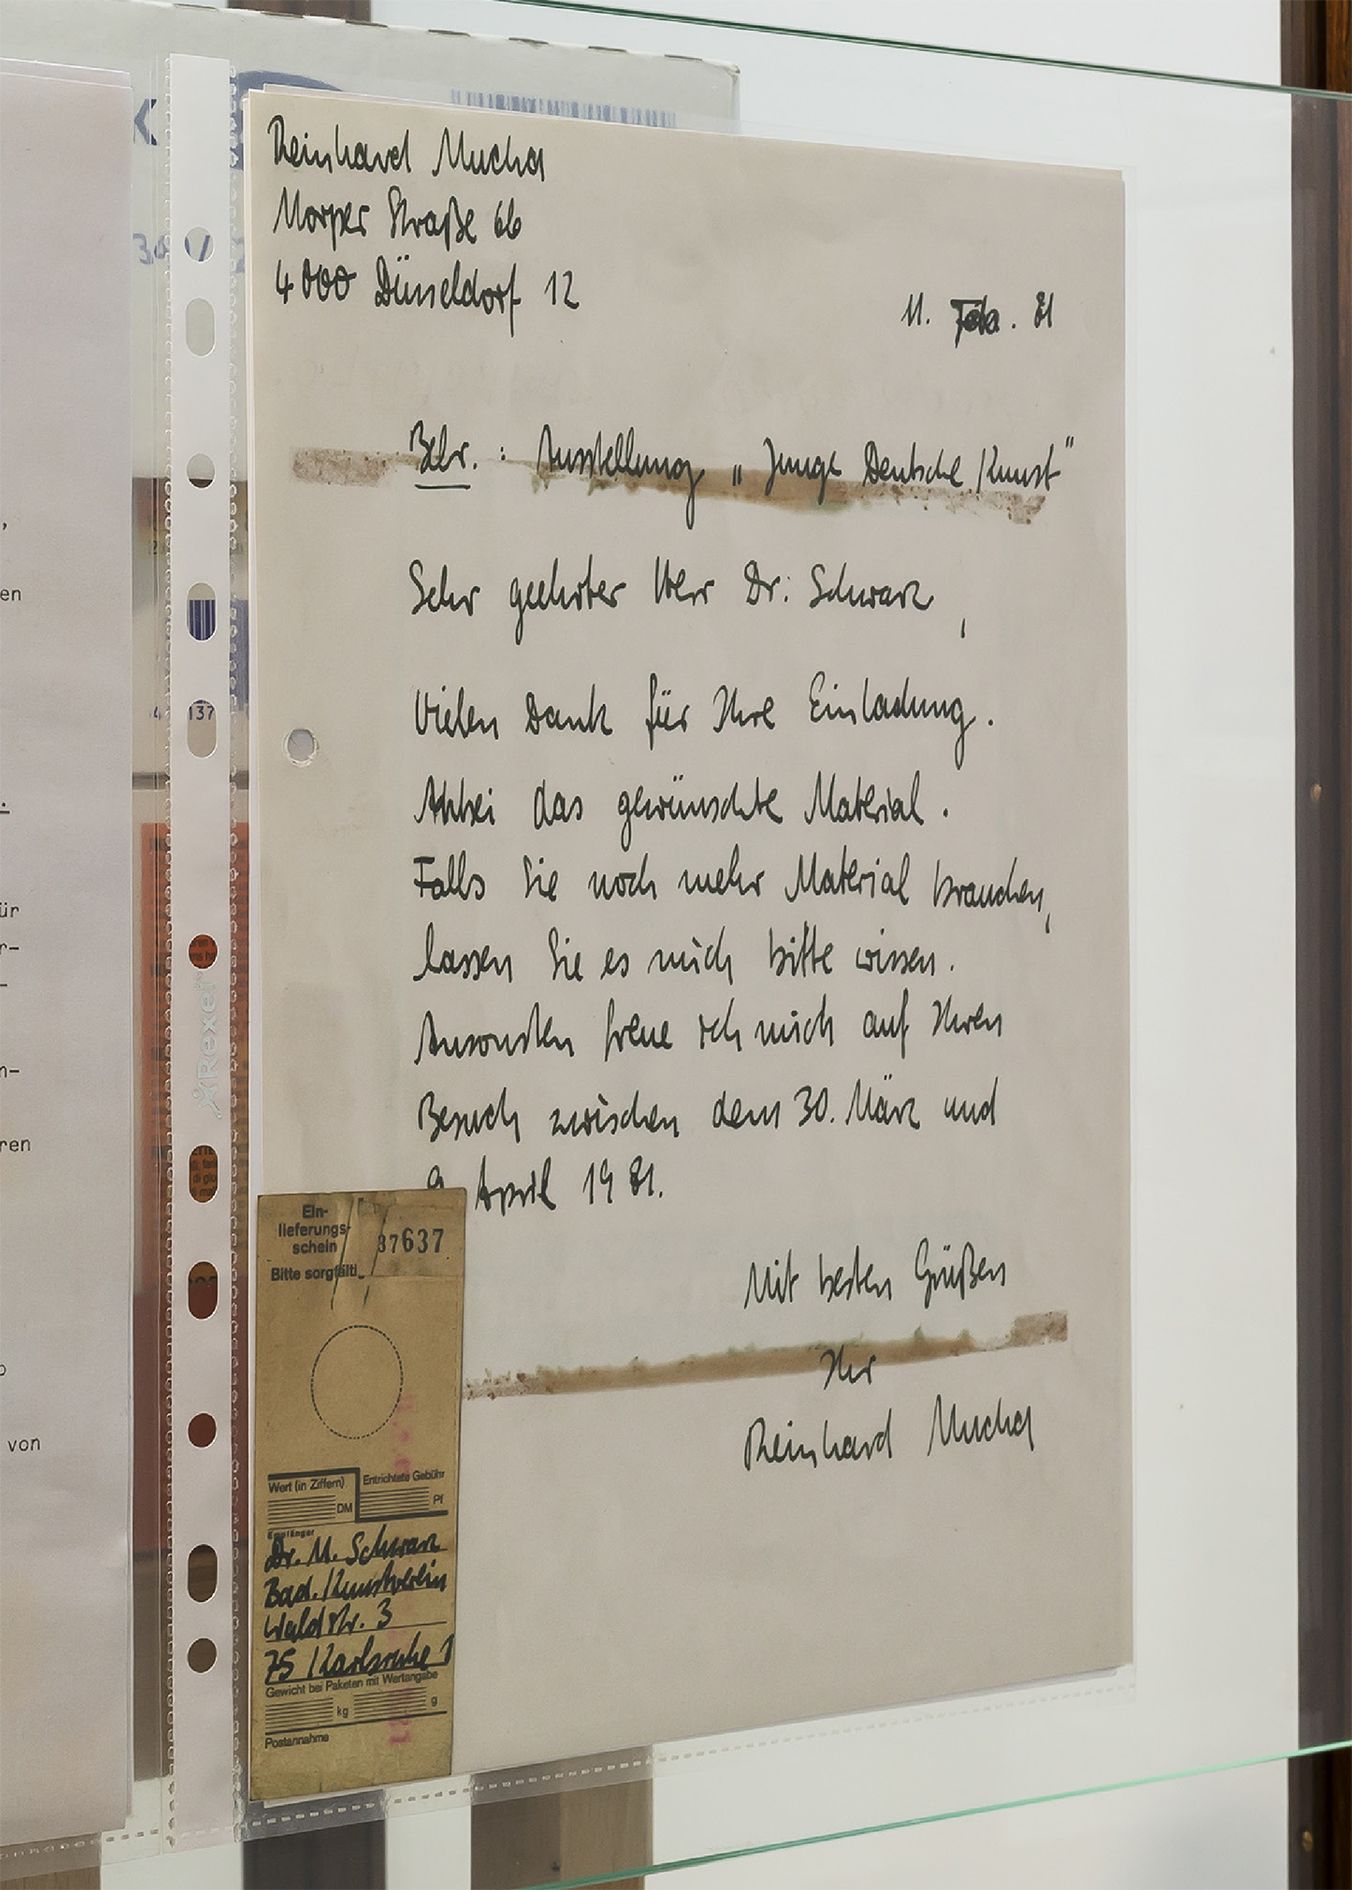 Reinhard Mucha
Morper Straße 66
4000 Düsseldorf 12
11. Feb. 81
Betr. : Ausstellung „Junge Deutsche Kunst"
Sehr geehrter Herr Dr. Schwarz,
Vielen Dank für Ihre Einladung.
Anbei das gewünschte Material.
Falls Sie noch mehr Material brauchen,
lassen Sie es mich bitte wissen.
Ansonsten freue ich mich auf Ihren
Besuch zwischen dem 30. März und
9 April 1981.
Mit besten Grüßen
Ihr
Reinhard Mucha
Ein-
lieferungs-
schein
37637
Bitte sorgfälti
Wert (in Ziffern)
Entrichtete Gebühr
DM
Pf
Empfänger
Dr. M. Schwarz
Bad. Kunstverein
Waldstr. 3
75 Karlsruhe 1
Gewicht bei Paketen mit Wertangabe
kg
g
Postannahme
Rexel
137
en
ür
r-
n-
ren
von